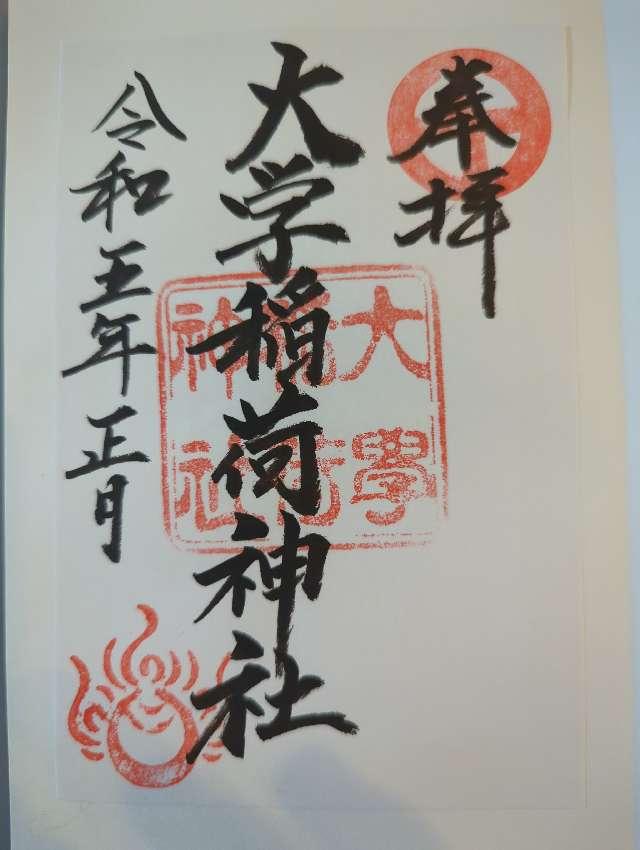 奉拝
大学稲荷神社
令和五年正月
大學
稲荷
神社